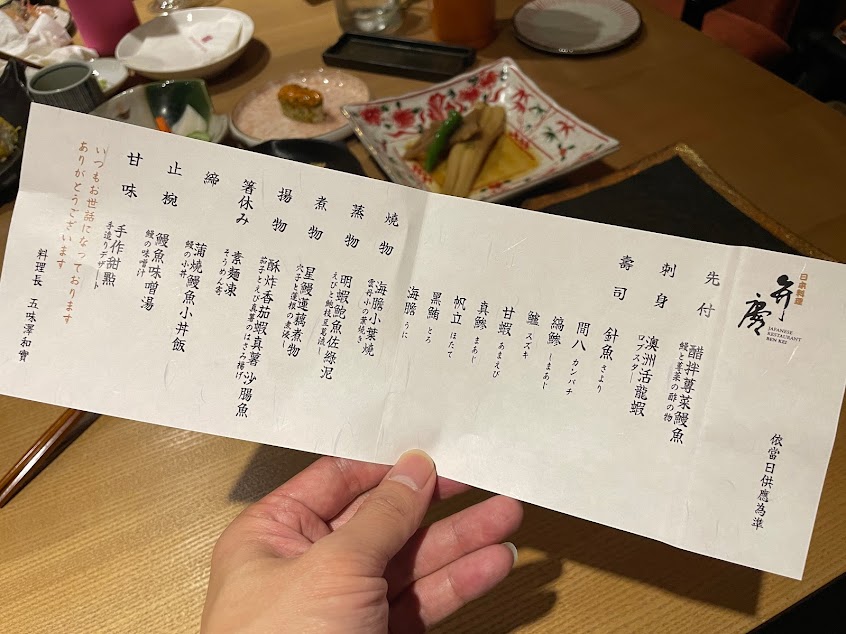 日本料理
弁慶
JAPANESE
RESTAURANT
BEN KEI
依當日供應為準
先付
醋拌蓴菜鰻魚
鰻と蓴菜の酢の物
刺身
澳洲活龍蝦
ロブスター
壽司
針魚 さより
間八 カンパチ
縞鯵 しまあじ
鱸 スズキ
甘蝦 あまえび
真鯵 まあじ
帆立 ほたて
黑鮪 とろ
海膽 うに
燒物
海膽小葉燒
雲丹小の葉焼き
蒸物
明蝦鮑魚佐綠泥
えびと鮑枝豆葛流し
煮物
星鰻蓮藕煮物
穴子と蓮根の煮浸し
揚物
酥炸香茄蝦真薯 沙腸魚
茄子とえび真薯のはさみ揚げ
箸休み
素麵凍
そうめん寄
締
蒲燒鰻魚小丼飯
鰻の小丼
止椀
鰻魚味噌湯
鰻の味噌汁
甘味
手作甜點
手造りデザート
いつもお世話になっております
ありがとうございます
料理長 五味澤和實